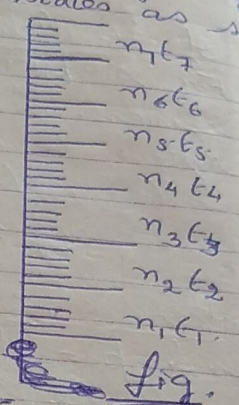 as s
n₁t₇
n₆t₆
n₅t₅
n₄t₄
n₃t₃
n₂t₂
n₁t₁.
fig.